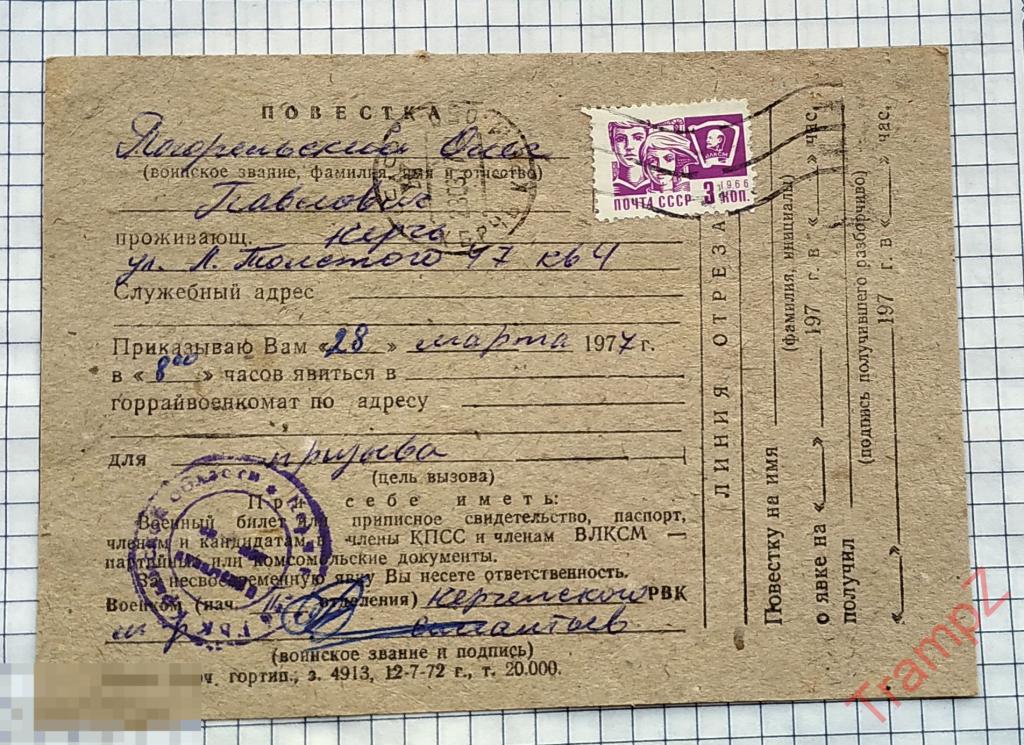 ПОВЕСТКА
Погорельский Олег
(воинское звание, фамилия, имя и отчество)
Павлович
проживающ. Керчь
ул. Л. Толстого 97 кв 4
Служебный адрес
Приказываю Вам «28» марта 1977 г.
в «8⁰⁰» часов явиться в
горрайвоенкомат по адресу
для призыва
(цель вызова)
При себе иметь:
Военный билет или приписное свидетельство, паспорт,
членам и кандидатам в члены КПСС и членам ВЛКСМ —
партийные или комсомольские документы.
За несвоевременную явку Вы несете ответственность.
Военком (нач. отделения) Керченского РВК
(воинское звание и подпись)
гортип., з. 4913, 12-7-72 г., т. 20.000.
ВЛКСМ
1966
ПОЧТА СССР 3 КОП.
КЕРЧЬ
области
ЛИНИЯ ОТРЕЗА
Повестку на имя
(фамилия, инициалы)
о явке на «  »  197  г. в «  » час.
получил
(подпись получившего разборчиво)
«  »  197  г. в «  » час.
TrampZ